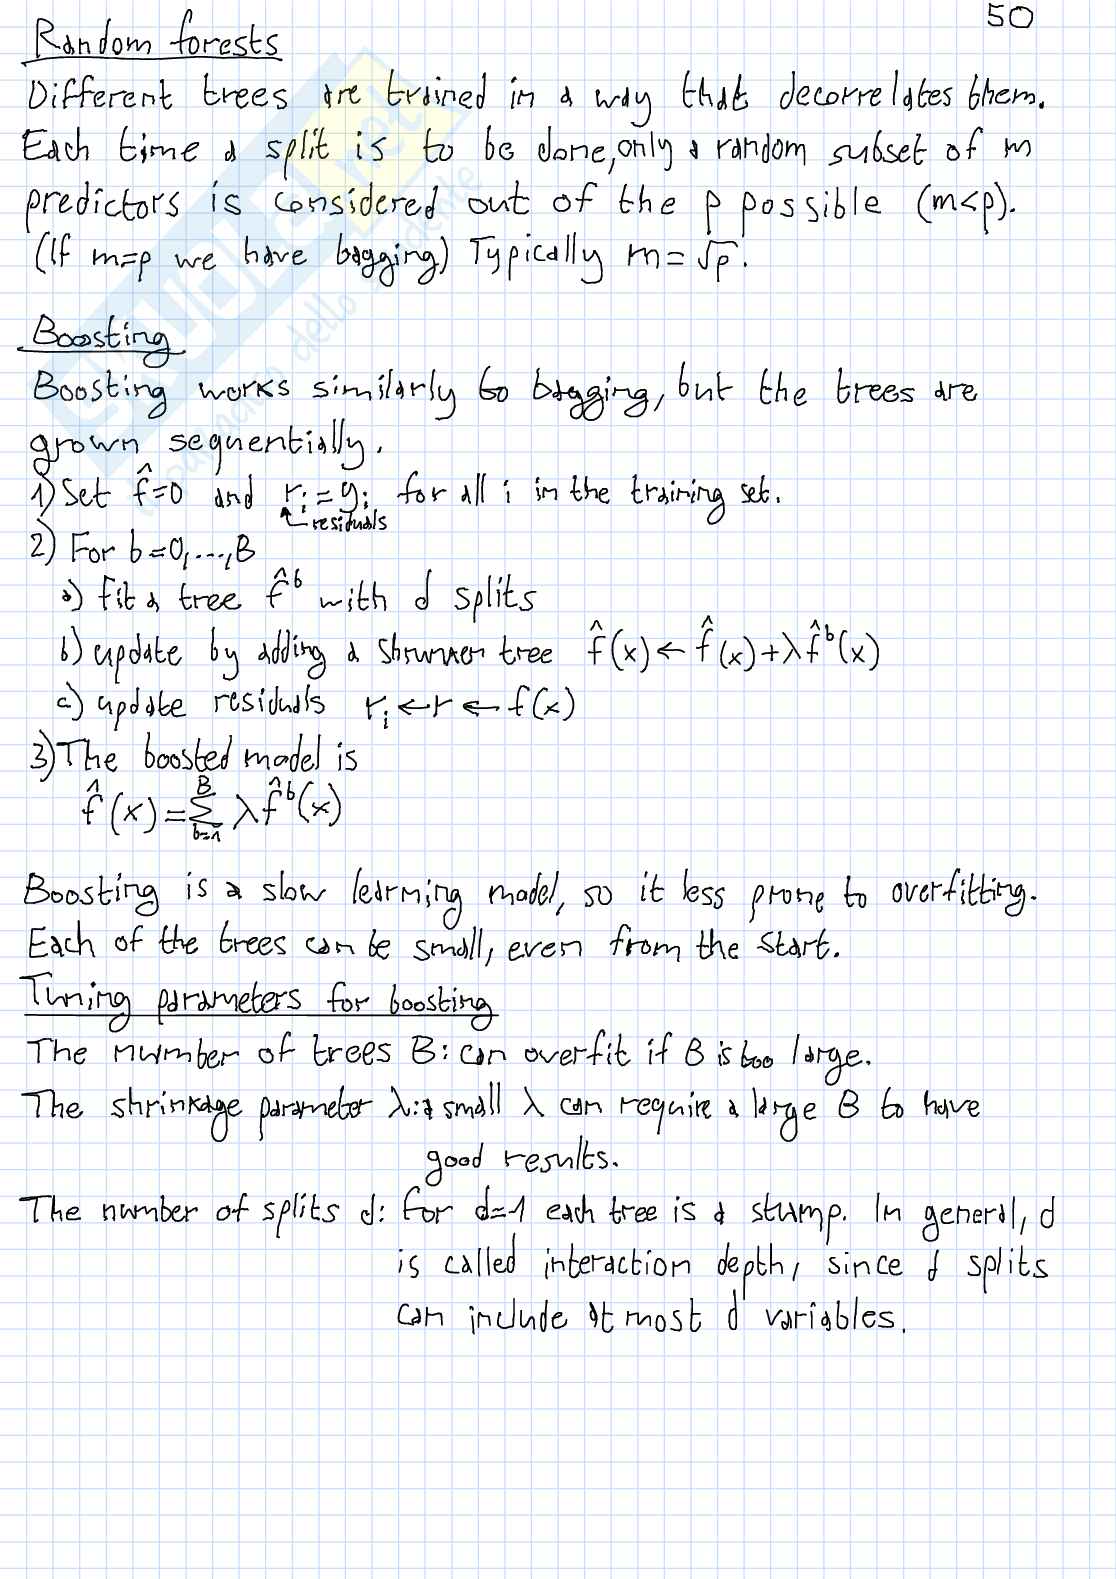 50
Random forests
Different trees are trained in a way that decorrelates them.
Each time a split is to be done, only a random subset of m
predictors is considered out of the p possible (m<p).
(If m=p we have bagging) Typically m=√p.
Boosting
Boosting works similarly to bagging, but the trees are
grown sequentially.
1) Set f̂=0 and rᵢ=yᵢ for all i in the training set.
residuals
2) For b=0,...,B
a) fit a tree f̂ᵇ with d splits
b) update by adding a shrunken tree f̂(x)←f̂(x)+λf̂ᵇ(x)
c) update residuals rᵢ←r←f(x)
3) The boosted model is
f̂(x)=∑ᴮb=1 λf̂ᵇ(x)
Boosting is a slow learning model, so it less prone to overfitting.
Each of the trees can be small, even from the start.
Tuning parameters for boosting
The number of trees B: can overfit if B is too large.
The shrinkage parameter λ: a small λ can require a large B to have
good results.
The number of splits d: for d=1 each tree is a stump. In general, d
is called interaction depth, since d splits
can include at most d variables.